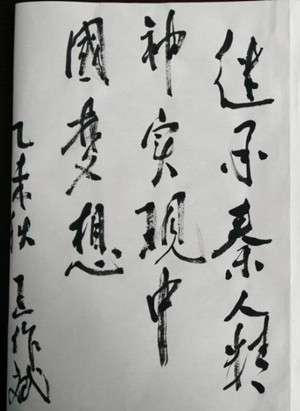 继承秦人精
神实现中
國梦想
乙未秋 作斌